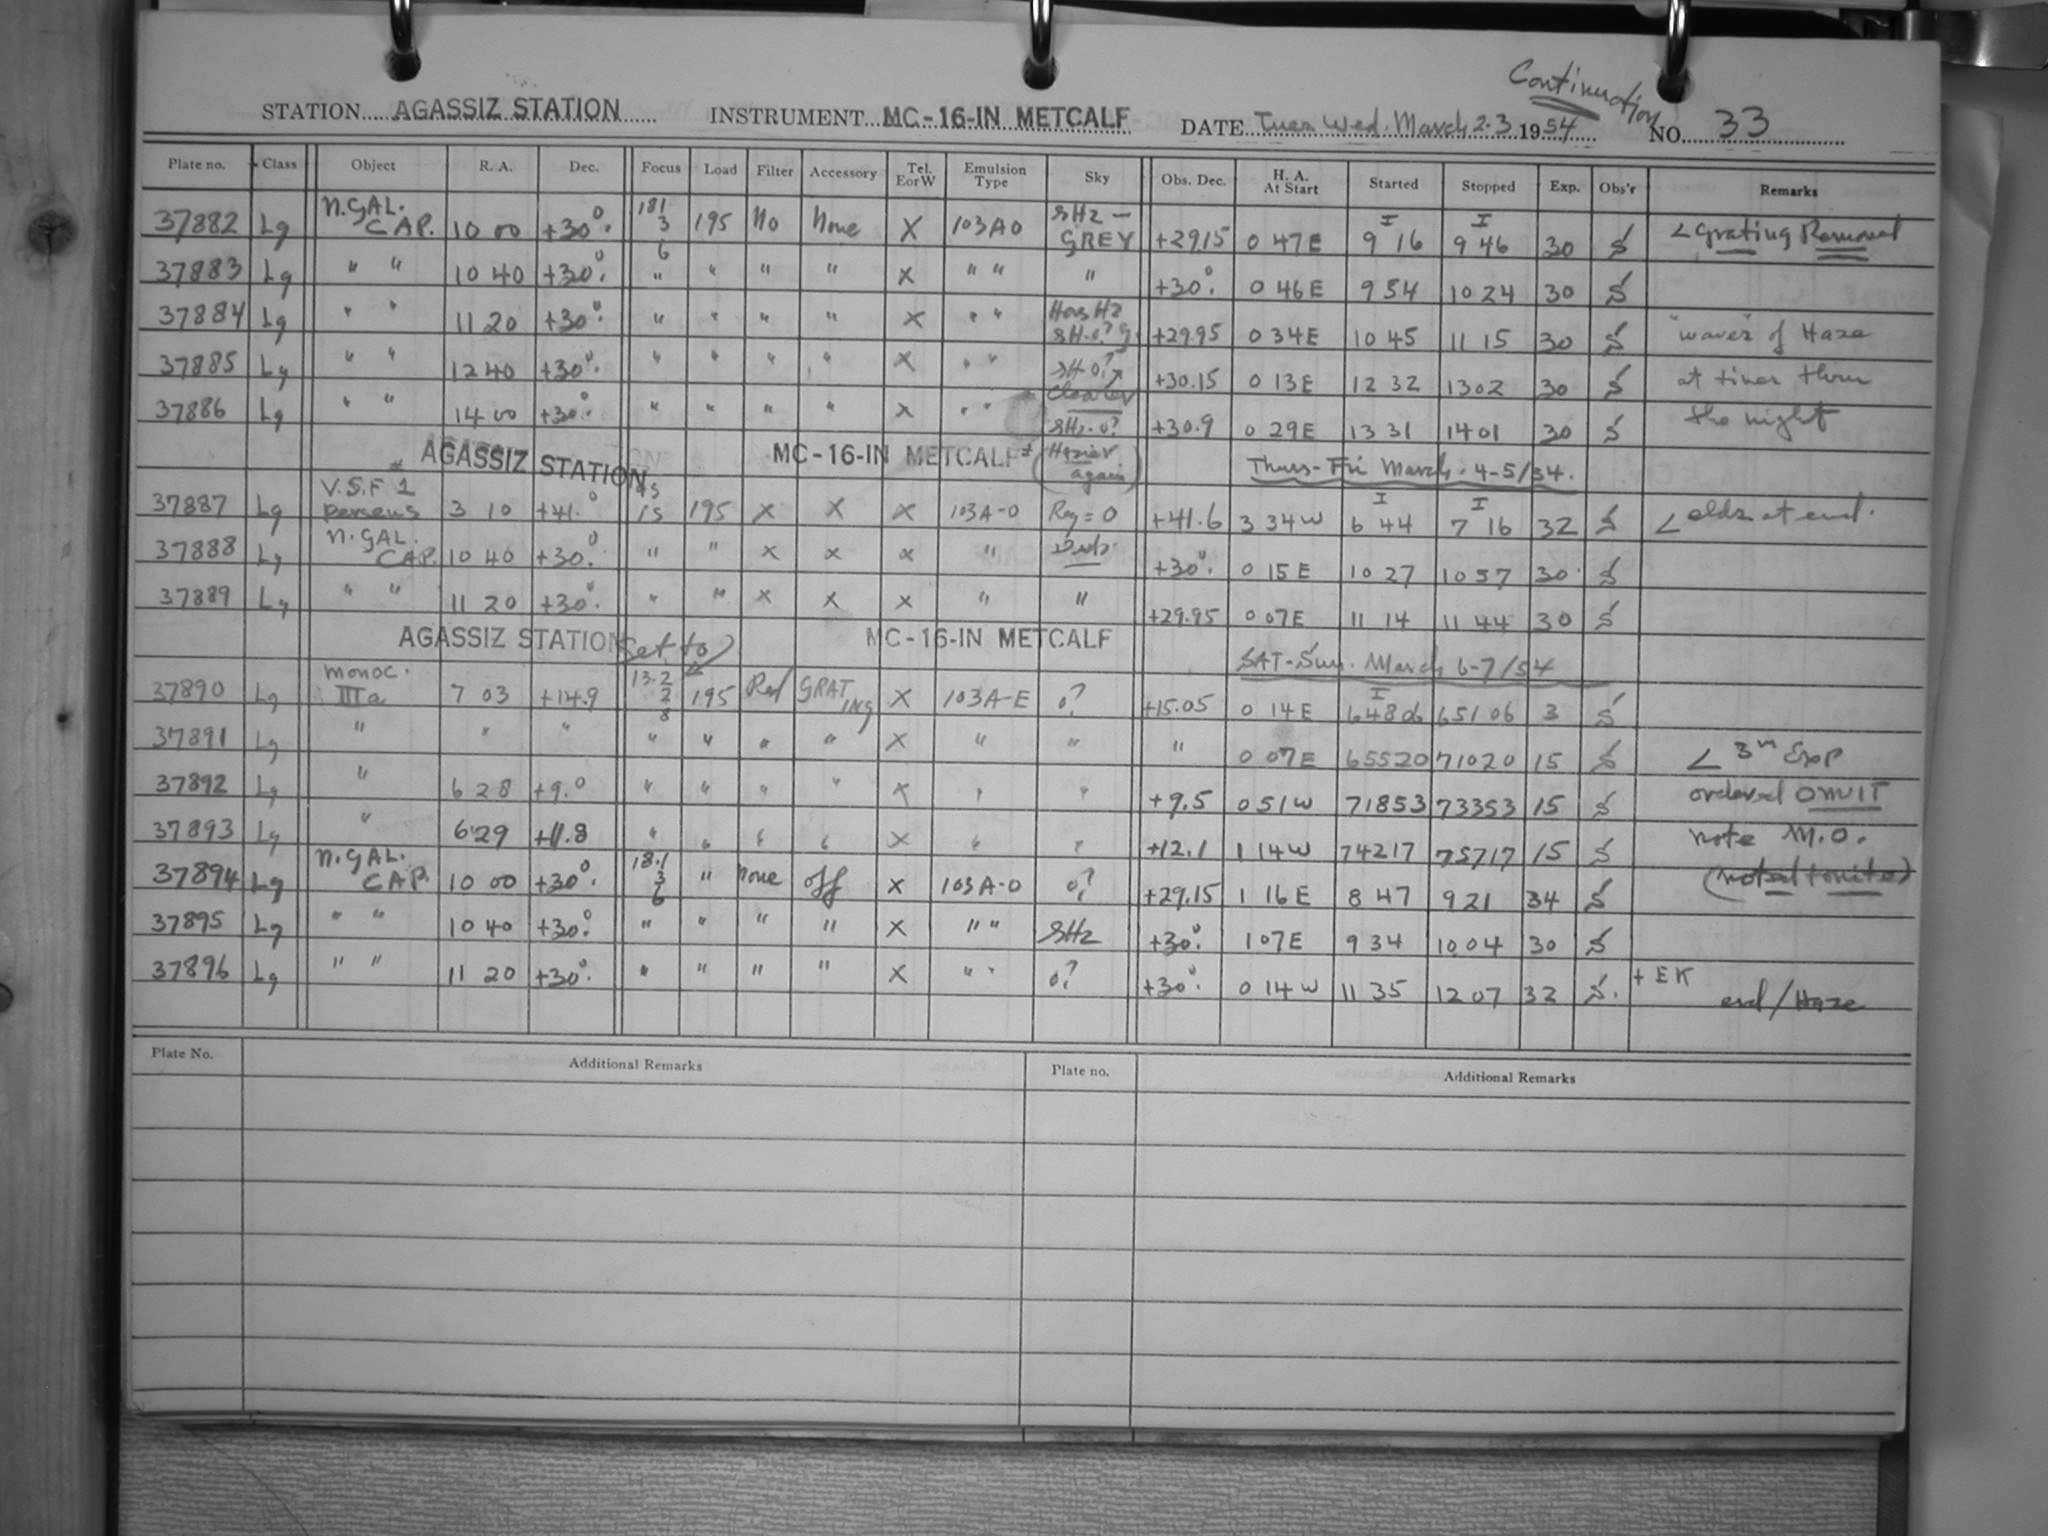 Continuation
STATION AGASSIZ STATION INSTRUMENT MC-16-IN METCALF DATE Tues Wed. March 2-3 1954 NO. 33
Plate no. Class Object R. A. Dec. Focus Load Filter Accessory Tel. E or W Emulsion Type Sky Obs. Dec. H. A. At Start Started Stopped Exp. Obs'r Remarks
37882 Lg N. GAL. CAP. 10 00 +30°. 18.1 3 6 195 No None X 103A0 SHZ - GREY +29.15 0 47E I 9 16 I 9 46 30 S < Grating Removed
37883 Lg " " 10 40 +30°. " " " " X " " " +30°. 0 46E 9 54 10 24 30 S
37884 Lg " " 11 20 +30°. " " " " X " " +29.95 0 34E 10 45 11 15 30 S "waves" of Haze
37885 Lg " " 12 40 +30°. " " " " X " " +30.15 0 13E 12 32 13 02 30 S at times thru
37886 Lg " " 14 00 +30°. " " " " X " " Clearer SHz-0? +30.9 0 29E 13 31 14 01 30 S the night
AGASSIZ STATION MC-16-IN METCALF (Hazier again) Thurs-Fri March. 4-5/54.
37887 Lg V.S.F 1 Perseus 3 10 +41.° 15 195 X X X 103A-0 = 0 +41.6 3 34W I 6 44 I 7 16 32 S < at end.
37888 Lg N. GAL. CAP. 10 40 +30°. " " X X X " +30°. 0 15E 10 27 10 57 30 S
37889 Lg " " 11 20 +30°. " " X X X " " +29.95 0 07E 11 14 11 44 30 S
AGASSIZ STATION Set to MC-16-IN METCALF SAT-Sun. March 6-7/54
37890 Lg Monoc. IIIa 7 03 +14.9 13.2 2 8 195 Red GRATING X 103A-E 0? +15.05 0 14E I 64806 65106 3 S
37891 Lg " " " " " " " X " " " 0 07E 65520 71020 15 S < 3m Exp
37892 Lg " 6 28 +9.0 " " " " X " " +9.5 0 51W 71853 73353 15 S ordered OMIT
37893 Lg " 6 29 +11.8 " " " " X " " +12.1 1 14W 74217 75717 15 S note M.O.
37894 Lg N. GAL. CAP. 10 00 +30°. 18.1 3 6 " None off X 103A-0 0? +29.15 1 16E 8 47 9 21 34 S
37895 Lg " " 10 40 +30°. " " " " X " " SHz +30°. 1 07E 9 34 10 04 30 S
37896 Lg " " 11 20 +30°. " " " " X " " 0? +30°. 0 14W 11 35 12 07 32 S. + EK end/Haze
Plate No. Additional Remarks Plate no. Additional Remarks